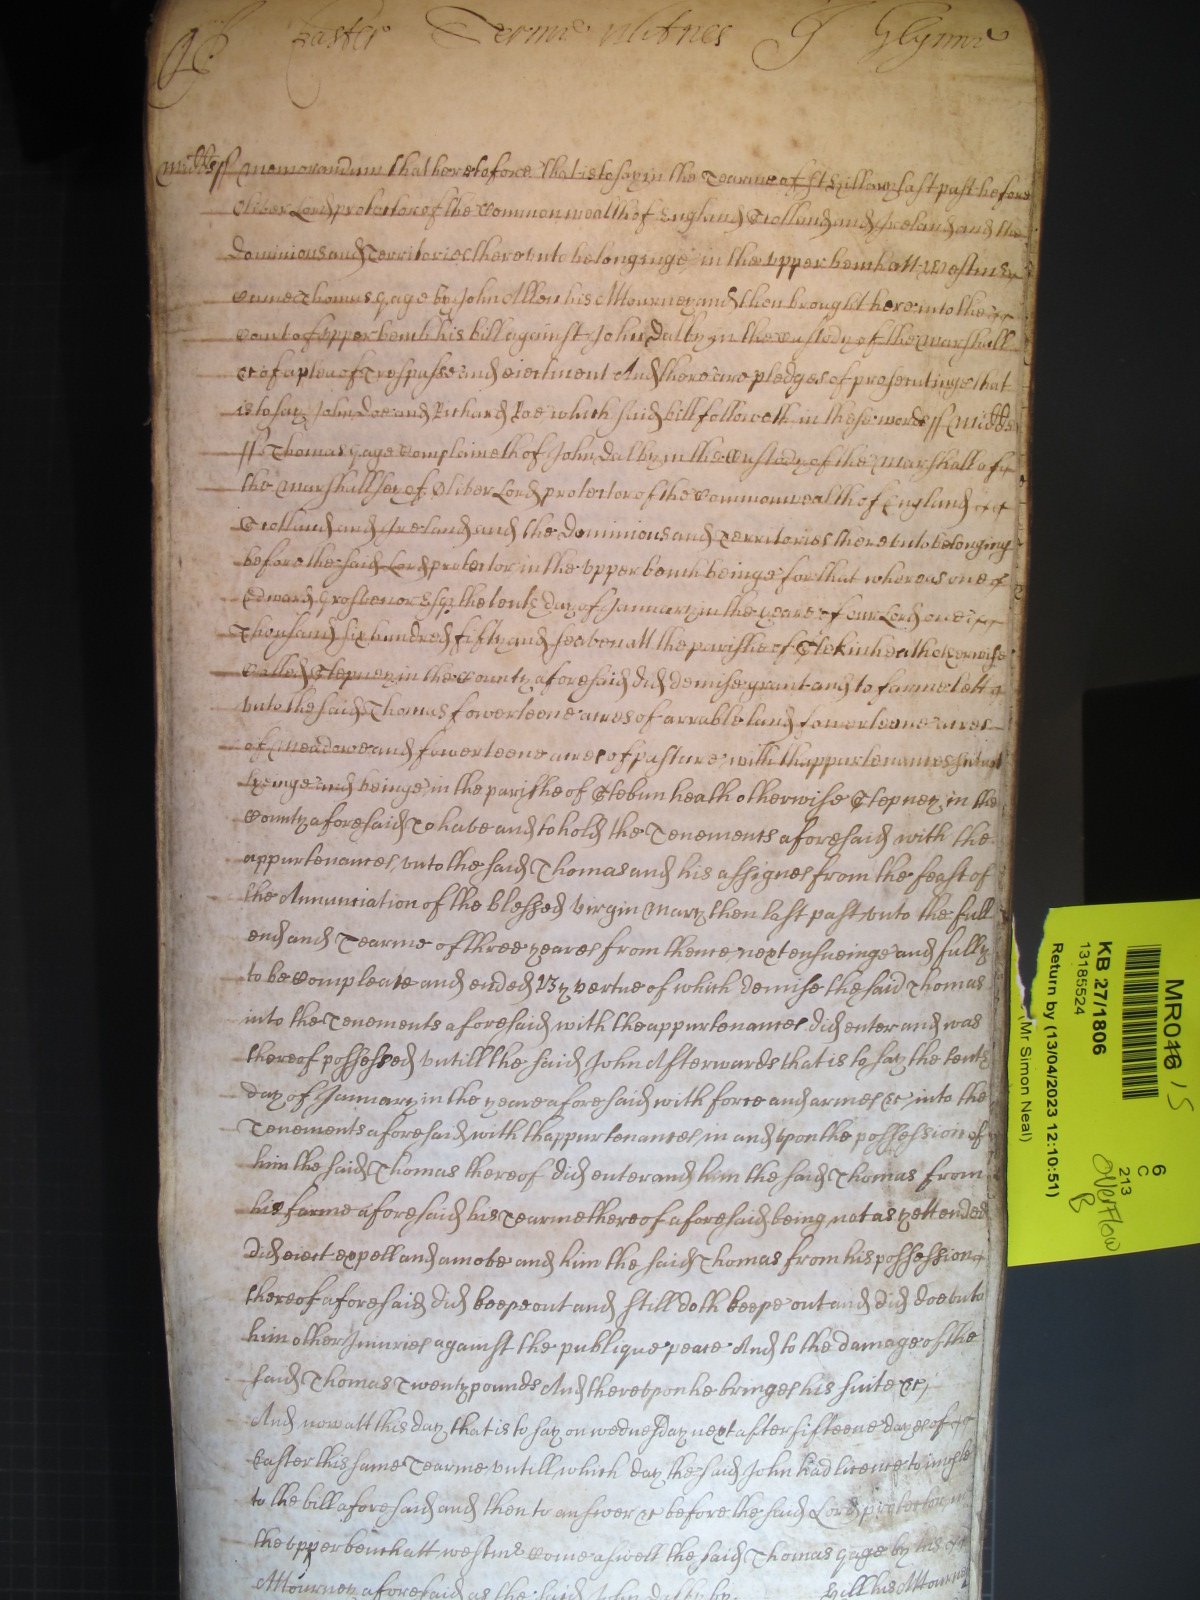 Easter Terme Witnes J Glynne
Midds ss Memorandum that heretofore that is to say in the Tearme of St Hillary last past before
Oliver Lord protector of the Commonwealth of England Scotland and Ireland and the
Dominions and Territories thereunto belonginge in the upper bench att Westmr
came Thomas Gage by John Allen his Attourney and then brought here into the
Court of upper bench his bill against John Dalby in the custody of the Marshall
&c of a plea of Trespasse and eiectment And there are pledges of prosecutinge that
is to say John Doe and Richard Roe which said bill followeth in these words ss Midds
ss Thomas Gage Complaineth of John Dalby in the Custody of the Marshall of
the Marshallsey of Oliver Lord protector of the Commonwealth of England
Scotland and Ireland and the Dominions and Territories thereunto belonging
before the said Lord protector in the upper bench beinge for that whereas one
Edward Grosvenor Esqr the tenth day of January in the yeare of our Lord one
Thousand six hundred fifty and seaven att the parishe of Stebinheath otherwise
Called Stepney in the County aforesaid did demise grant and to farme lett
unto the said Thomas fowerteene acres of arrable land fowerteene acres
of meadowe and fowerteene acres of pasture with thappurtenances scituat
lyeinge and beinge in the parishe of Stebunheath otherwise Stepney in the
County aforesaid To have and to hold the Tenements aforesaid with the
appurtenances unto the said Thomas and his assignes from the feast of
the Annunciation of the blessed virgin Mary then last past unto the full
end and Tearme of three yeares from thence next ensueinge and fully
to be compleate and ended By vertue of which demise the said Thomas
into the Tenements aforesaid with the appurtenances did enter and was
thereof possessed untill the said John Afterwards that is to say the tenth
day of January in the yeare aforesaid with force and armes &c into the
Tenements aforesaid with thappurtenances in and upon the possession of
him the said Thomas thereof did enter and him the said Thomas from
his farme aforesaid his Tearme thereof aforesaid being not as yett ended
did eiect expell and amove and him the said Thomas from his possession
thereof aforesaid did keepe out and still doth keepe out and did doe unto
him other Iniuries against the publique peace And to the damage of the
said Thomas Twenty pounds And thereupon he bringes his suite &c
And now att this day that is to say on wednesday next after fifteene dayes of
Easter this same Tearme untill which day the said John had licence to imple
to the bill aforesaid and then to answer &c before the said Lord protector in
the upper bench att westmr come aswell the said Thomas Gage by his
Attourney aforesaid as the said John Dalby by Hill his Attourney
MR016 / 5
KB 27/1806
13185524
Return by (13/04/2023 12:10:51)
(Mr Simon Neal)
6
C
213
Overflow
B